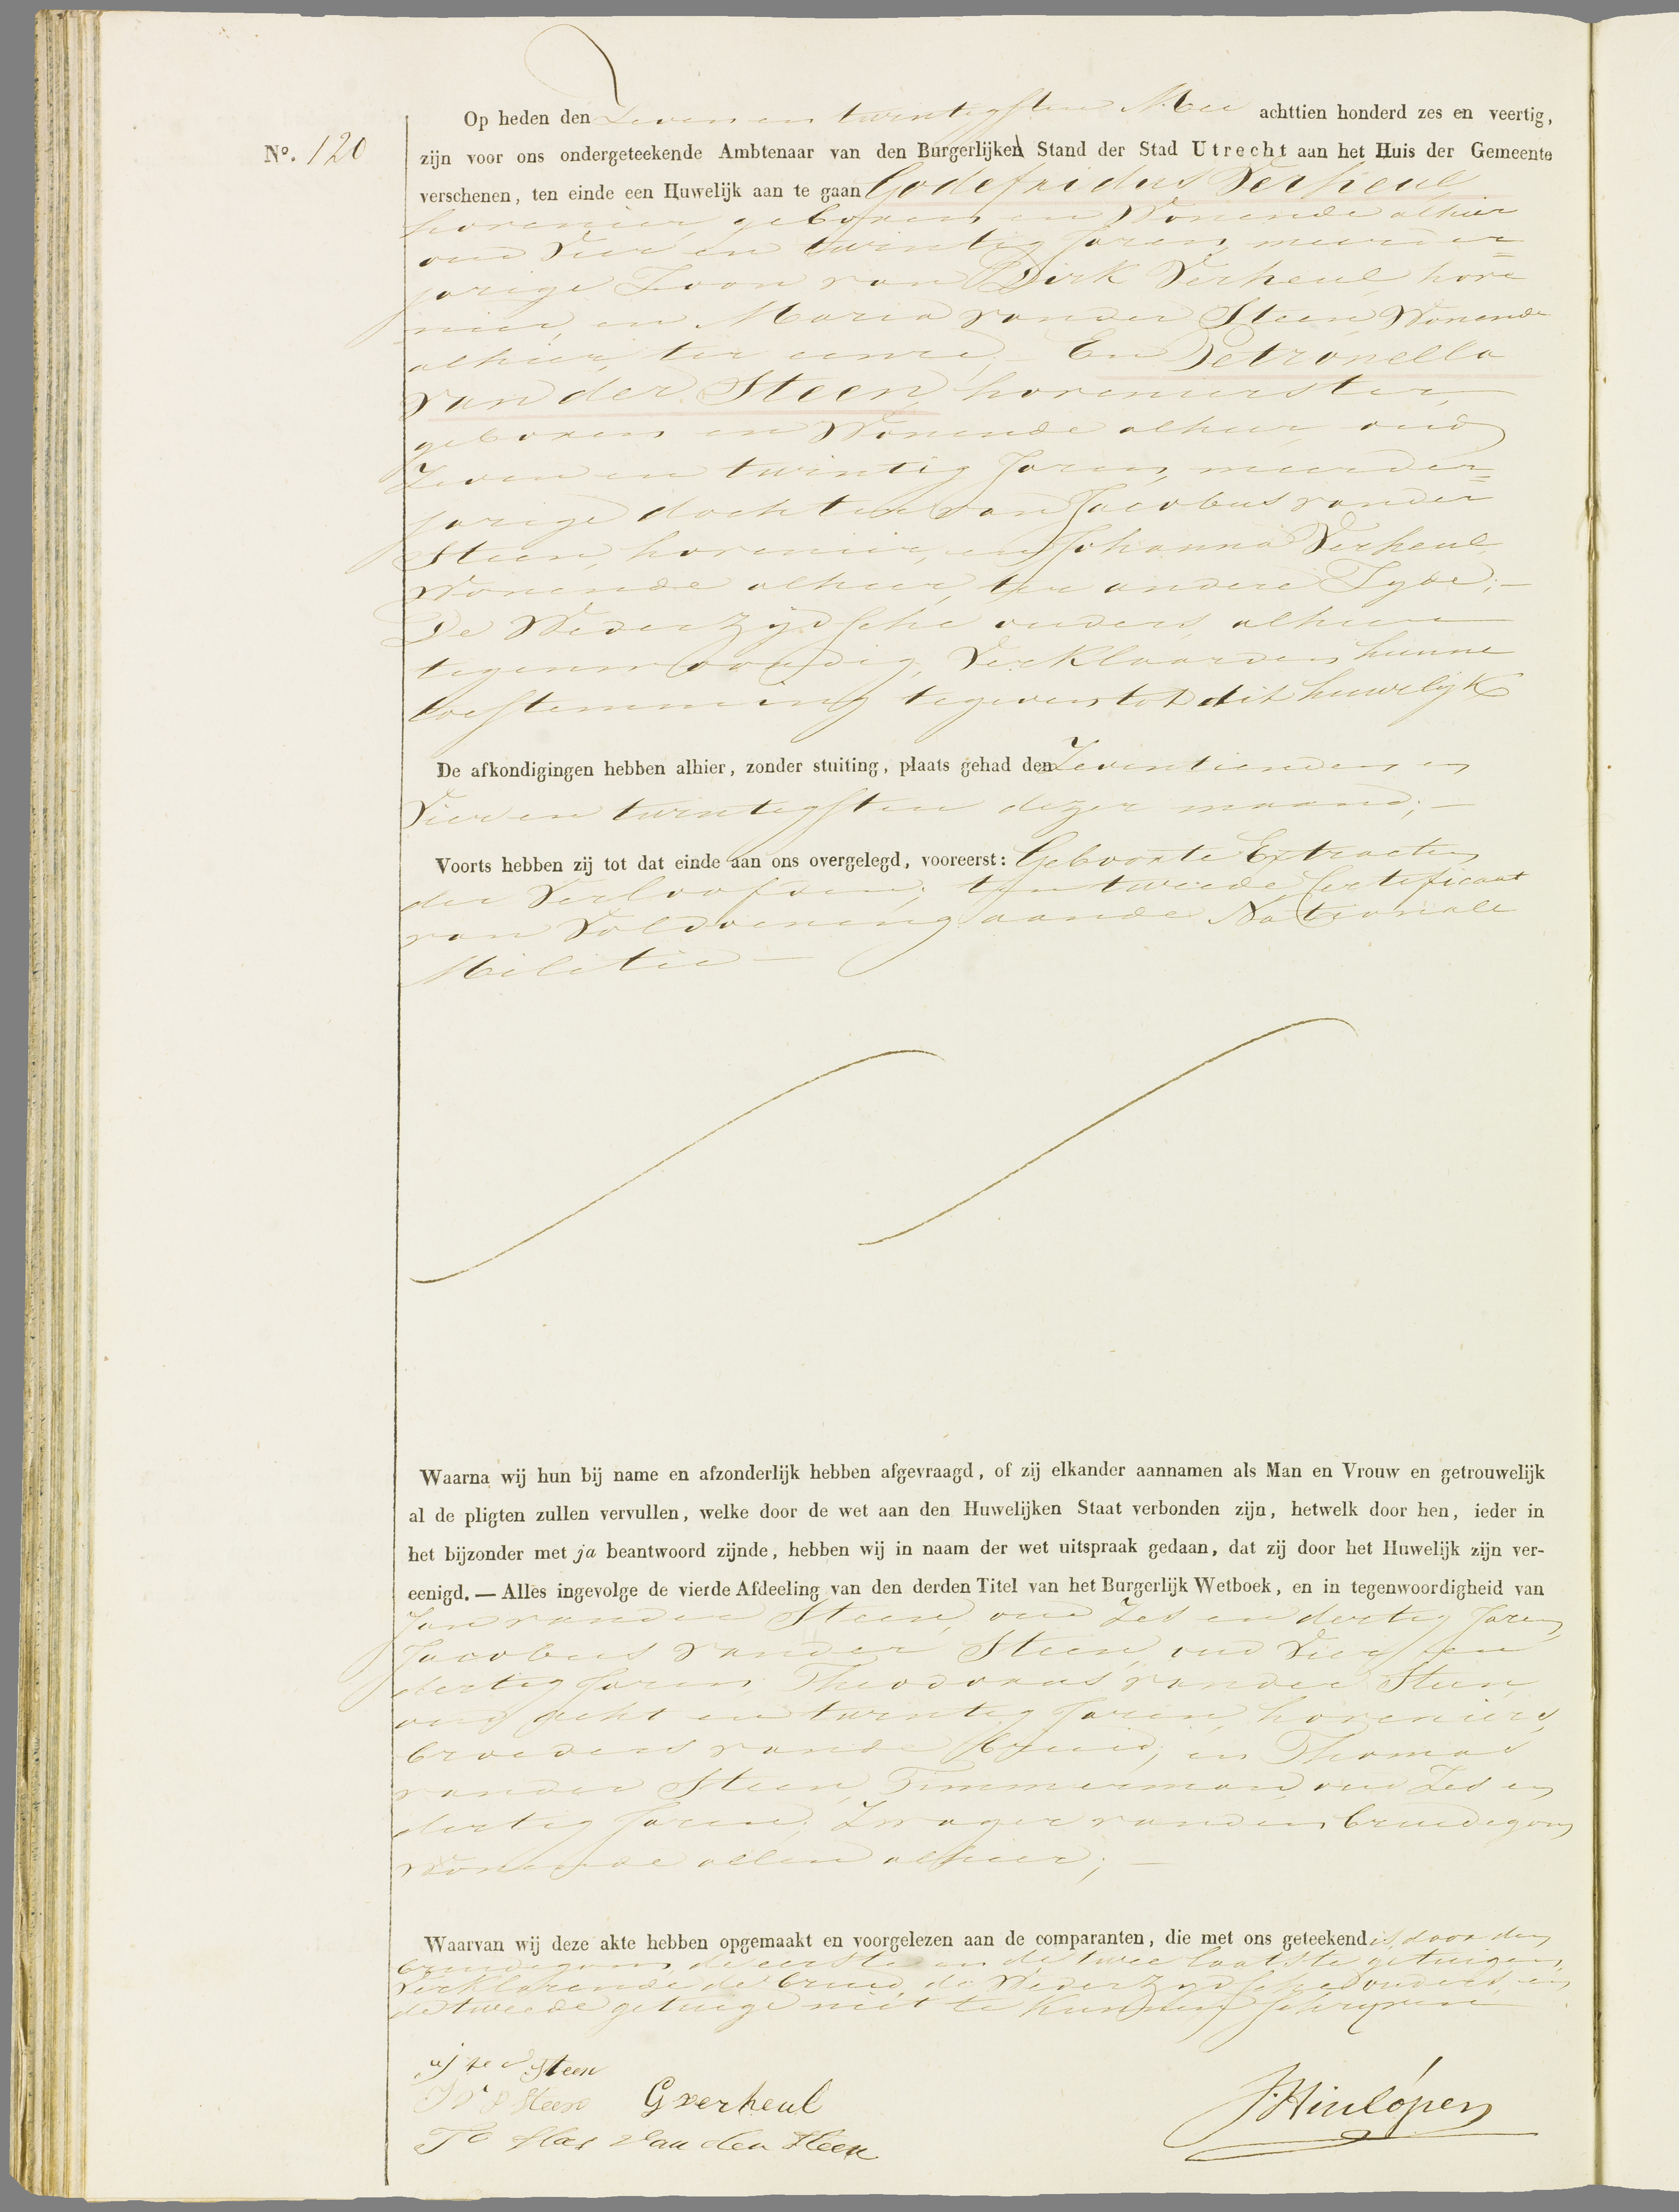 Op heden den Zeven en twintigsten Mei achttien honderd zes en veertig,
No. 120
zijn voor ons ondergeteekende Ambtenaar van den Burgerlijken Stand der Stad Utrecht aan het Huis der Gemeente
verschenen, ten einde een Huwelijk aan te gaan Godefridus Verheul
hovenier, geboren en Wonende alhier
oud Vier en twintig Jaren, meerder=
jarige Zoon van Dirk Verheul, hove
nier, en Maria vander Steen, Wonende
alhier, ter eenre; – En Petronella
van der Steen, hovenierster,
geboren en Wonende alhier, oud
Zeven en twintig Jaren, meerder=
jarige dochter van Jacobus vander
Steen, hovenier, en Johanna Verheul
Wonende alhier, ter andere Zyde; –
De Wederzydsche ouders, alhier
tegenwoordig, Verklaarden hunne
toestemming tegeven tot dit huwelijk
De afkondigingen hebben alhier, zonder stuiting, plaats gehad den Zeventienden en
Vier en twintigsten dezer maand; –
Voorts hebben zij tot dat einde aan ons overgelegd, vooreerst: Geboorte Extracten
der Verloofden; ten tweede Certificaat
van Voldoening aande Nationale
Militie –
Waarna wij hun bij name en afzonderlijk hebben afgevraagd, of zij elkander aannamen als Man en Vrouw en getrouwelijk
al de pligten zullen vervullen, welke door de wet aan den Huwelijken Staat verbonden zijn, hetwelk door hen, ieder in
het bijzonder met ja beantwoord zijnde, hebben wij in naam der wet uitspraak gedaan, dat zij door het Huwelijk zijn ver-
eenigd. — Alles ingevolge de vierde Afdeeling van den derden Titel van het Burgerlijk Wetboek, en in tegenwoordigheid van
Jan vander Steen, oud Zes en dertig Jaren,
Jacobus vander Steen, oud Vier en
dertig Jaren, Theodorus vander Steen,
oud acht en twintig Jaren, hoveniers,
broeders vande bruid, en Thomas
vander Steen, Timmerman, oud Zes en
dertig Jaren, Zwager vanden bruidegom
Wonende allen alhier; –
Waarvan wij deze akte hebben opgemaakt en voorgelezen aan de comparanten, die met ons geteekend is door den
bruidegom, de eerste en de twee laatste getuigen,
Verklarende de bruid, de Wederzydsche ouders, en
de tweede getuige niet te kunnen schryven
Steen
Steen G verheul
van der Steen
J Hinlópen